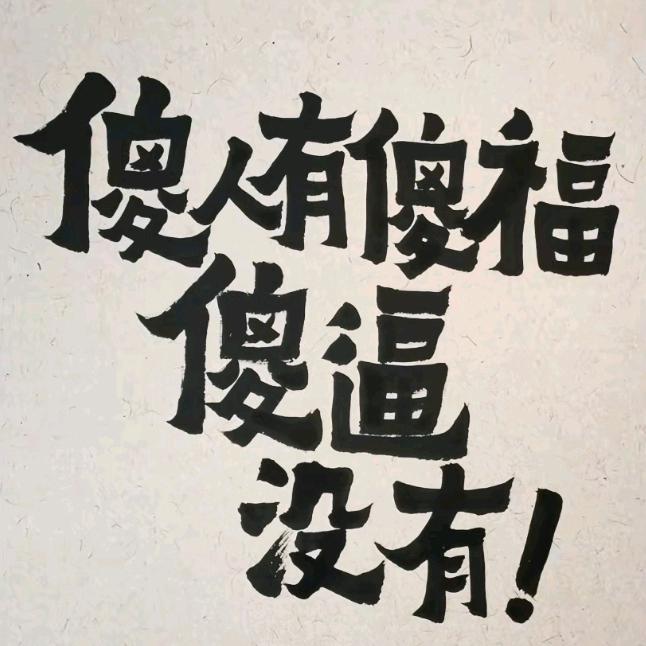 傻人有傻福
傻逼
没有!